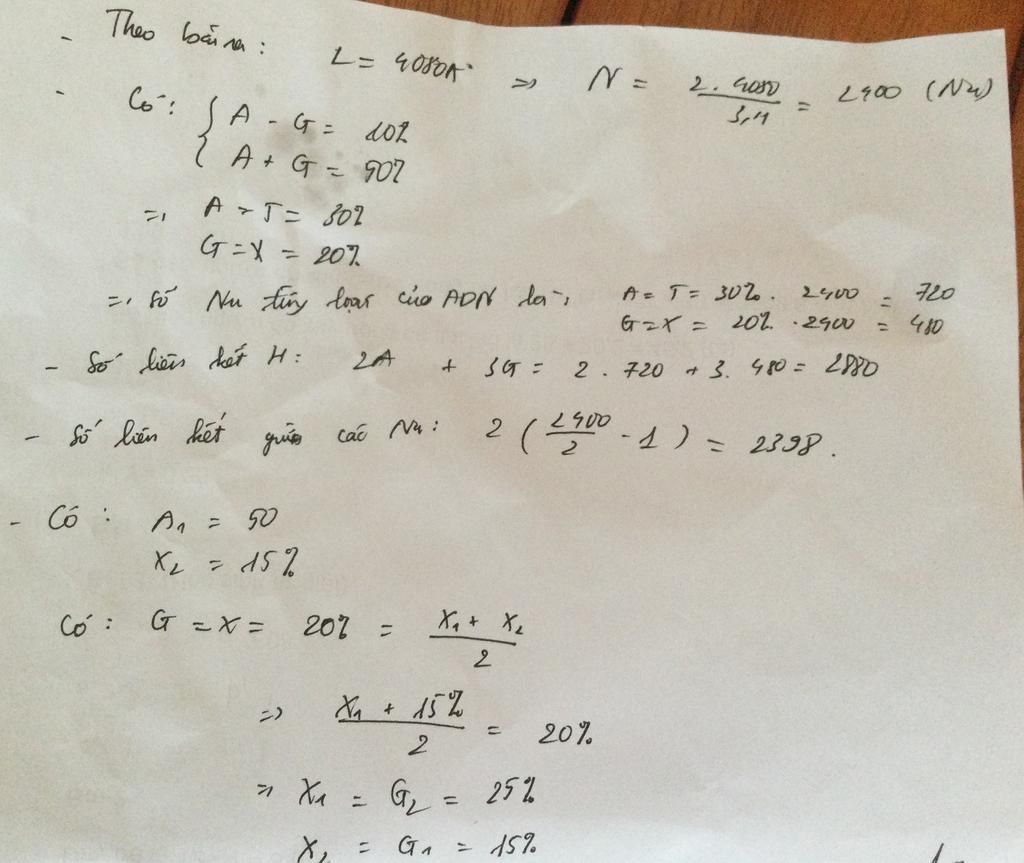 - Theo bài ra: L = 4080A° => N = 2.4080/3,4 = 2400 (Nu)
- Có: { A - G = 10%
A + G = 50%
=> A = T = 30%
G = X = 20%
=> Số Nu từng loại của ADN là: A = T = 30% . 2400 = 720
G = X = 20% . 2400 = 480
- Số liên kết H: 2A + 3G = 2 . 720 + 3 . 480 = 2880
- Số liên kết giữa các Nu: 2 (2400/2 - 1) = 2398.
- Có: A1 = 50
X2 = 15%
Có: G = X = 20% = X1 + X2/2
=> X1 + 15%/2 = 20%
=> X1 = G2 = 25%
X2 = G1 = 15%